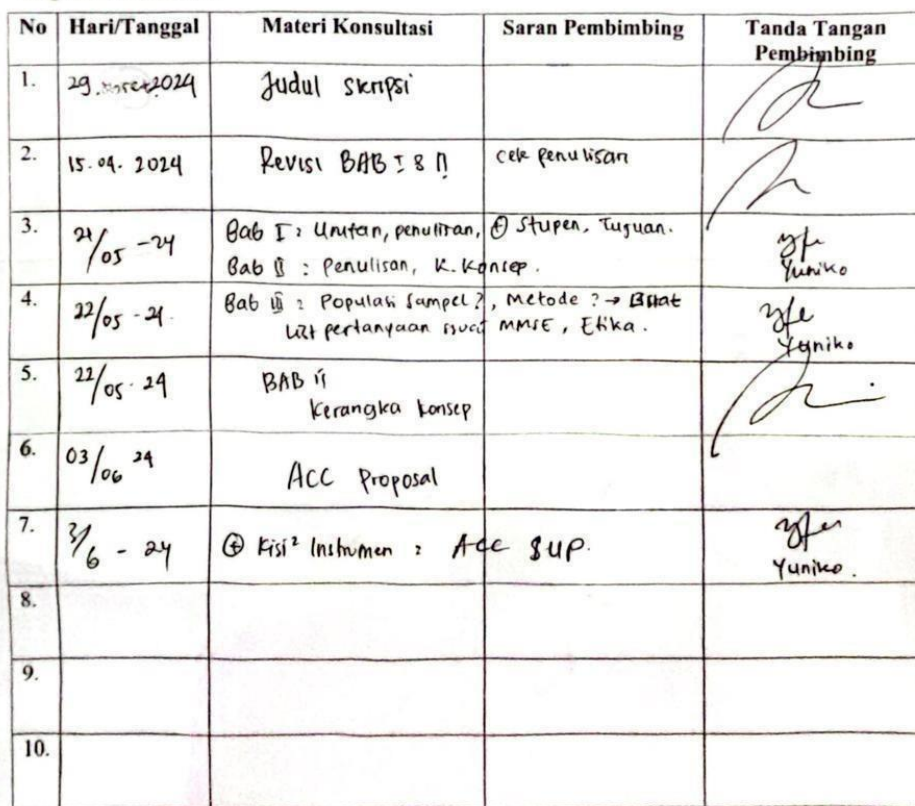 No Hari/Tanggal Materi Konsultasi Saran Pembimbing Tanda Tangan
Pembimbing
1. 29 Maret 2024 Judul skripsi
2. 15.04.2024 Revisi BAB I & II cek penulisan
3. 21/05-24 Bab I : Urutan, penulisan, ⊕ Stupen, Tujuan.
Bab II : Penulisan, K. Konsep.
Yuniko
4. 22/05-24. Bab III : Populasi Sampel?, Metode? →
List pertanyaan MMSE, Etika.
Yuniko
5. 22/05-24 BAB II
Kerangka konsep
6. 03/06 24 ACC Proposal
7. 3/6 - 24 ⊕ Kisi² Instrumen : Acc SUP.
Yuniko.
8.
9.
10.